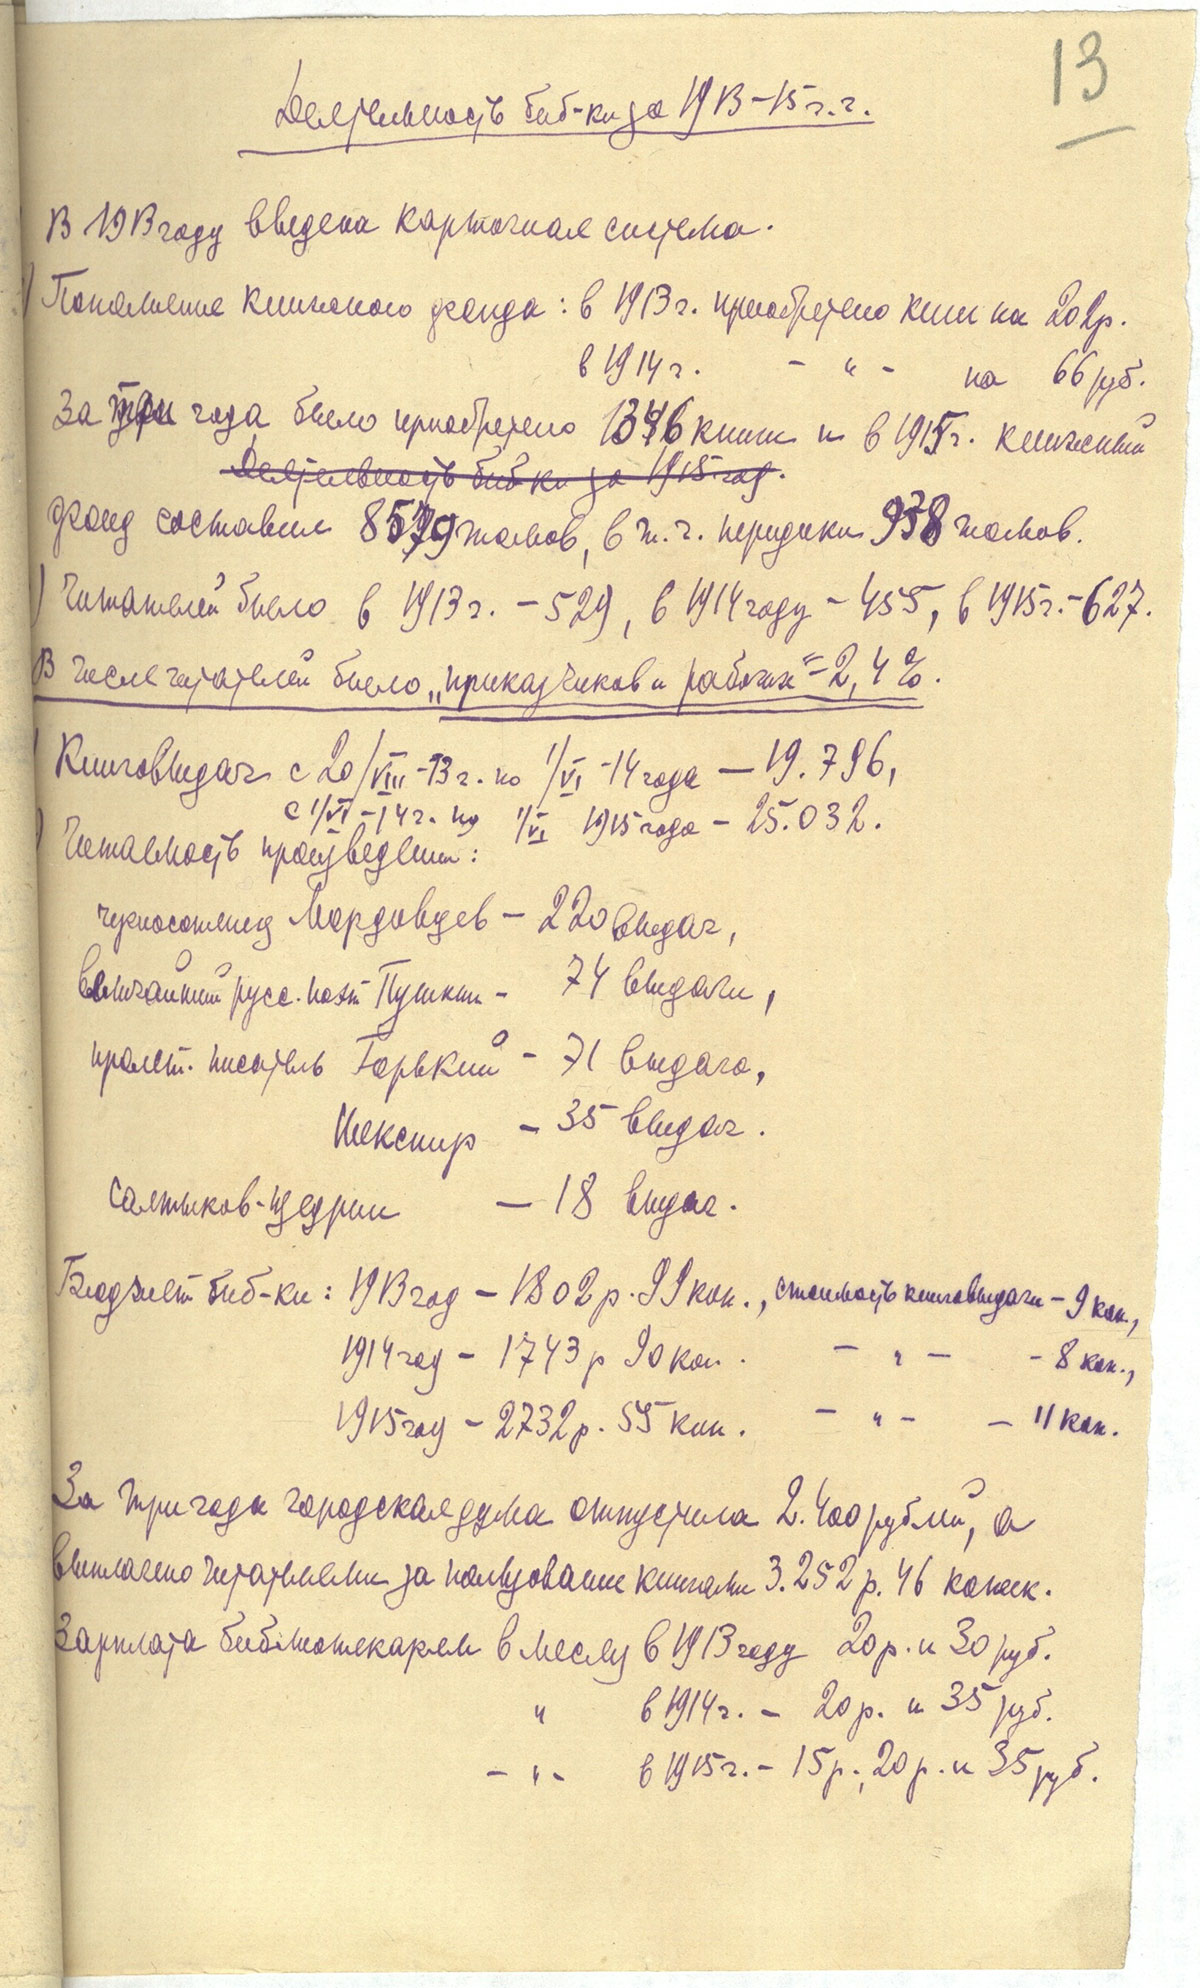 13
Деятельность биб-ки за 1913-15 г.г.
В 1913 году введена карточная система.
Пополнение книжного фонда: в 1913 г. приобретено книг на 202 р.
в 1914 г. - " - на 66 руб.
За три года было приобретено книг и в 1915 г. книжный
Деятельность биб-ки за 1915 год.
фонд составил 8579 томов, в т.ч. периодики 938 томов.
) Читателей было в 1913 г. - 529, в 1914 году - 455, в 1915 г. - 627.
В числе читателей было „приказчиков и рабочих" - 2,4%.
Книговыдач с 20/VIII-13 г. по 1/VI-14 года — 19.796,
с 1/VI-14 г. по 1/VI 1915 года - 25.032.
Читаемость произведений:
черносотенец Мордовцев - 220 выдач,
величайший русс. поэт Пушкин - 74 выдачи,
пролет. писатель Горький - 71 выдача,
Шекспир - 35 выдач.
Салтыков-Щедрин — 18 выдач.
Бюджет биб-ки: 1913 год - 1802 р. 99 коп., стоимость книговыдачи - 9 коп.,
1914 год - 1743 р 90 коп. - " - - 8 коп.,
1915 год - 2732 р. 55 коп. - " - - 11 коп.
За три года городская дума отпустила 2.400 рублей, а
выплачено читателями за пользование книгами 3.252 р. 46 копеек.
Зарплата библиотекарям в месяц в 1913 году 20 р. и 30 руб.
" в 1914 г. - 20 р. и 35 руб.
- " - в 1915 г. - 15 р., 20 р. и 35 руб.